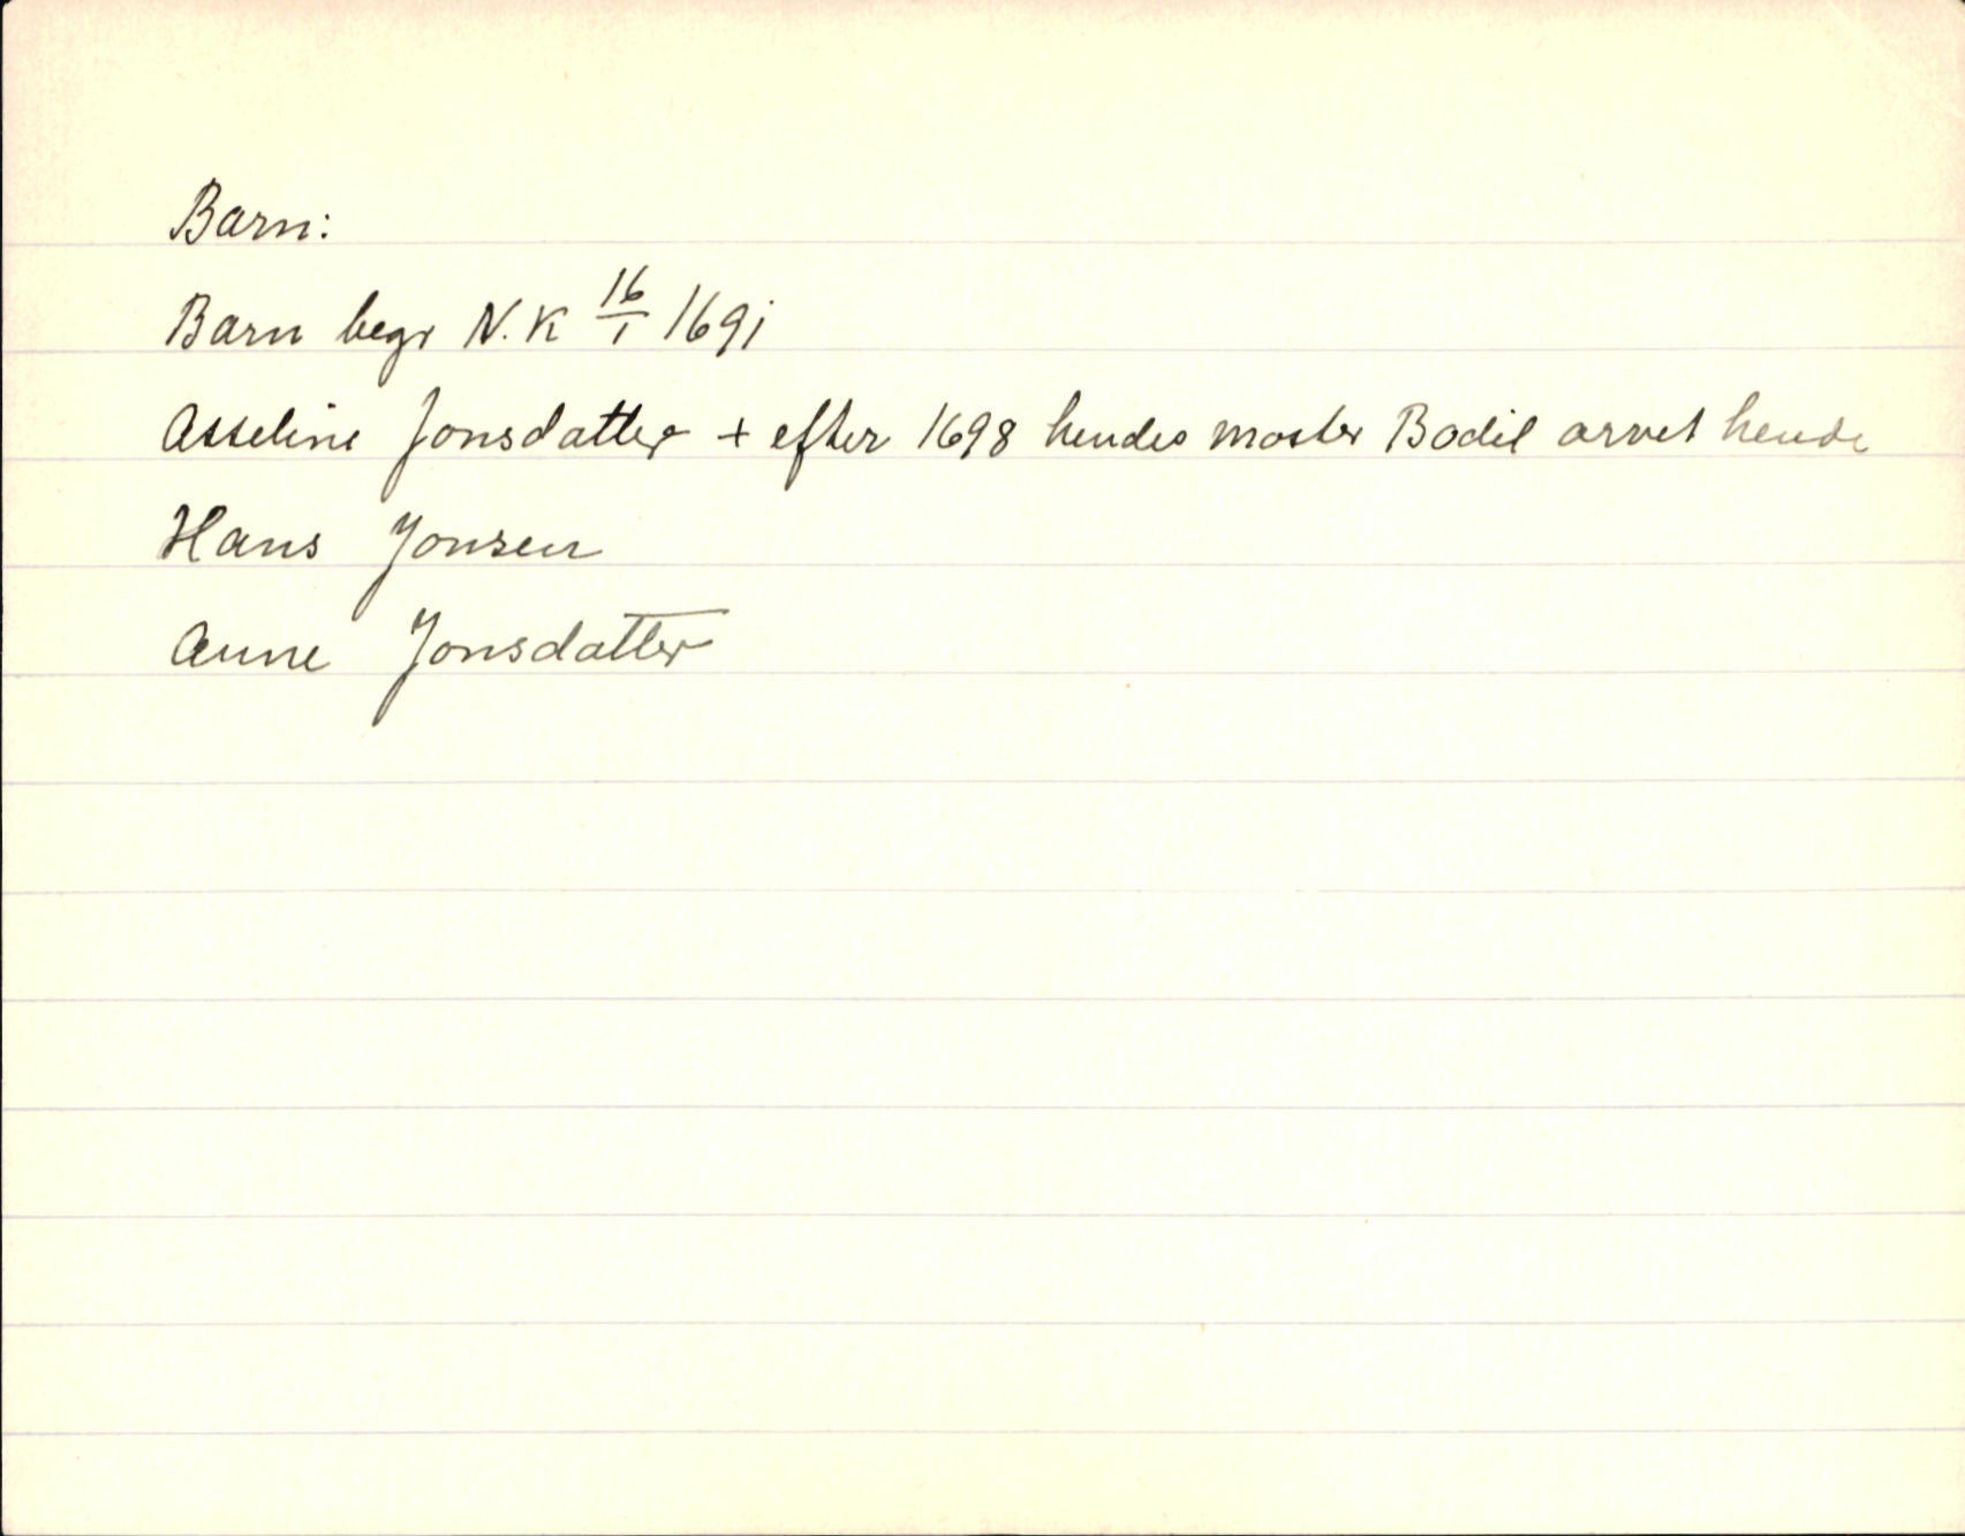 Barn:
Barn begr N. K 16/1 1691
Asseline Jonsdatter + efter 1698 hendes moster Bodil arvet hende
Hans Jonsen
Anne Jonsdatter